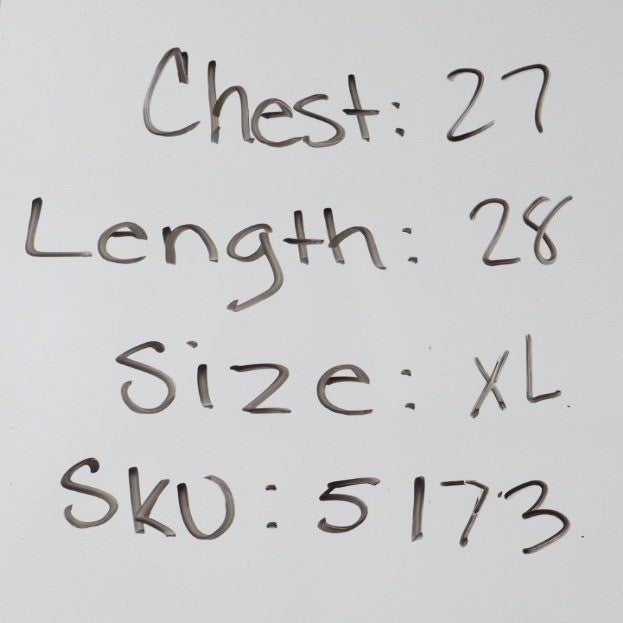 Chest: 27
Length: 28
Size: XL
SKU: 5173